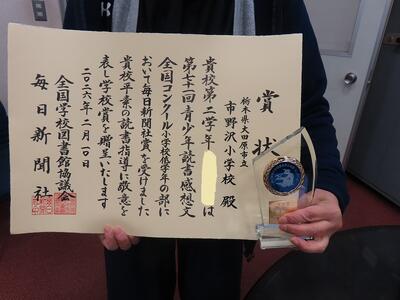 賞状
栃木県大田原市立
市野沢小学校 殿
貴校第二学年 は
第七十一回青少年読書感想文
全国コンクール小学校低学年の部に
おいて毎日新聞社賞を受けました
貴校平素の読書指導に敬意を
表し学校賞を贈呈いたします
二〇二六年二月一〇日
全国学校図書館協議会
毎日新聞社